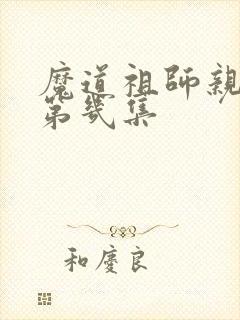 魔道祖師親
第幾集
和慶良